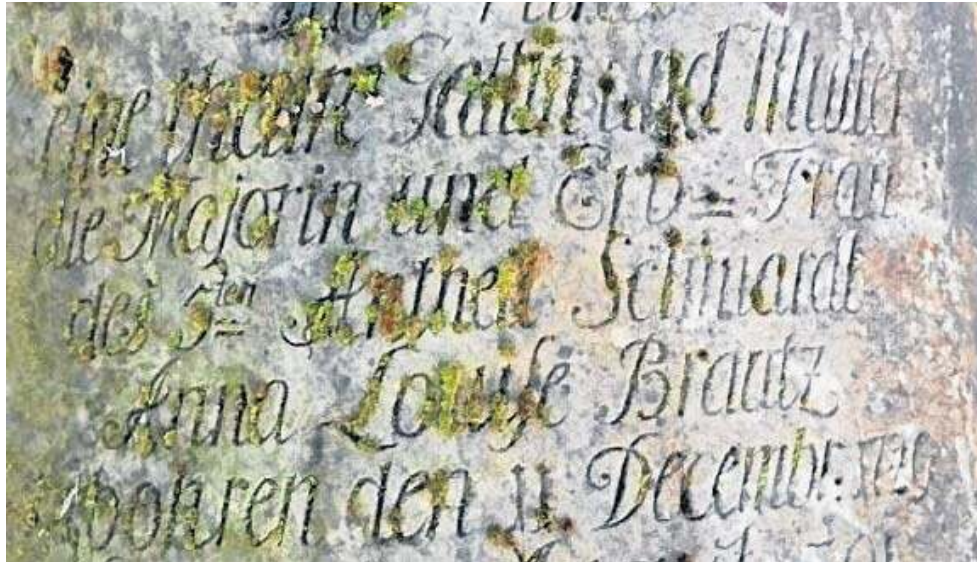 eine theure Gattin und Mutter
die Majorin und Erb = Frau
des 5ten Antheil Schwardt
Anna Lowise Brautz
gebohren den 11 Decembr: